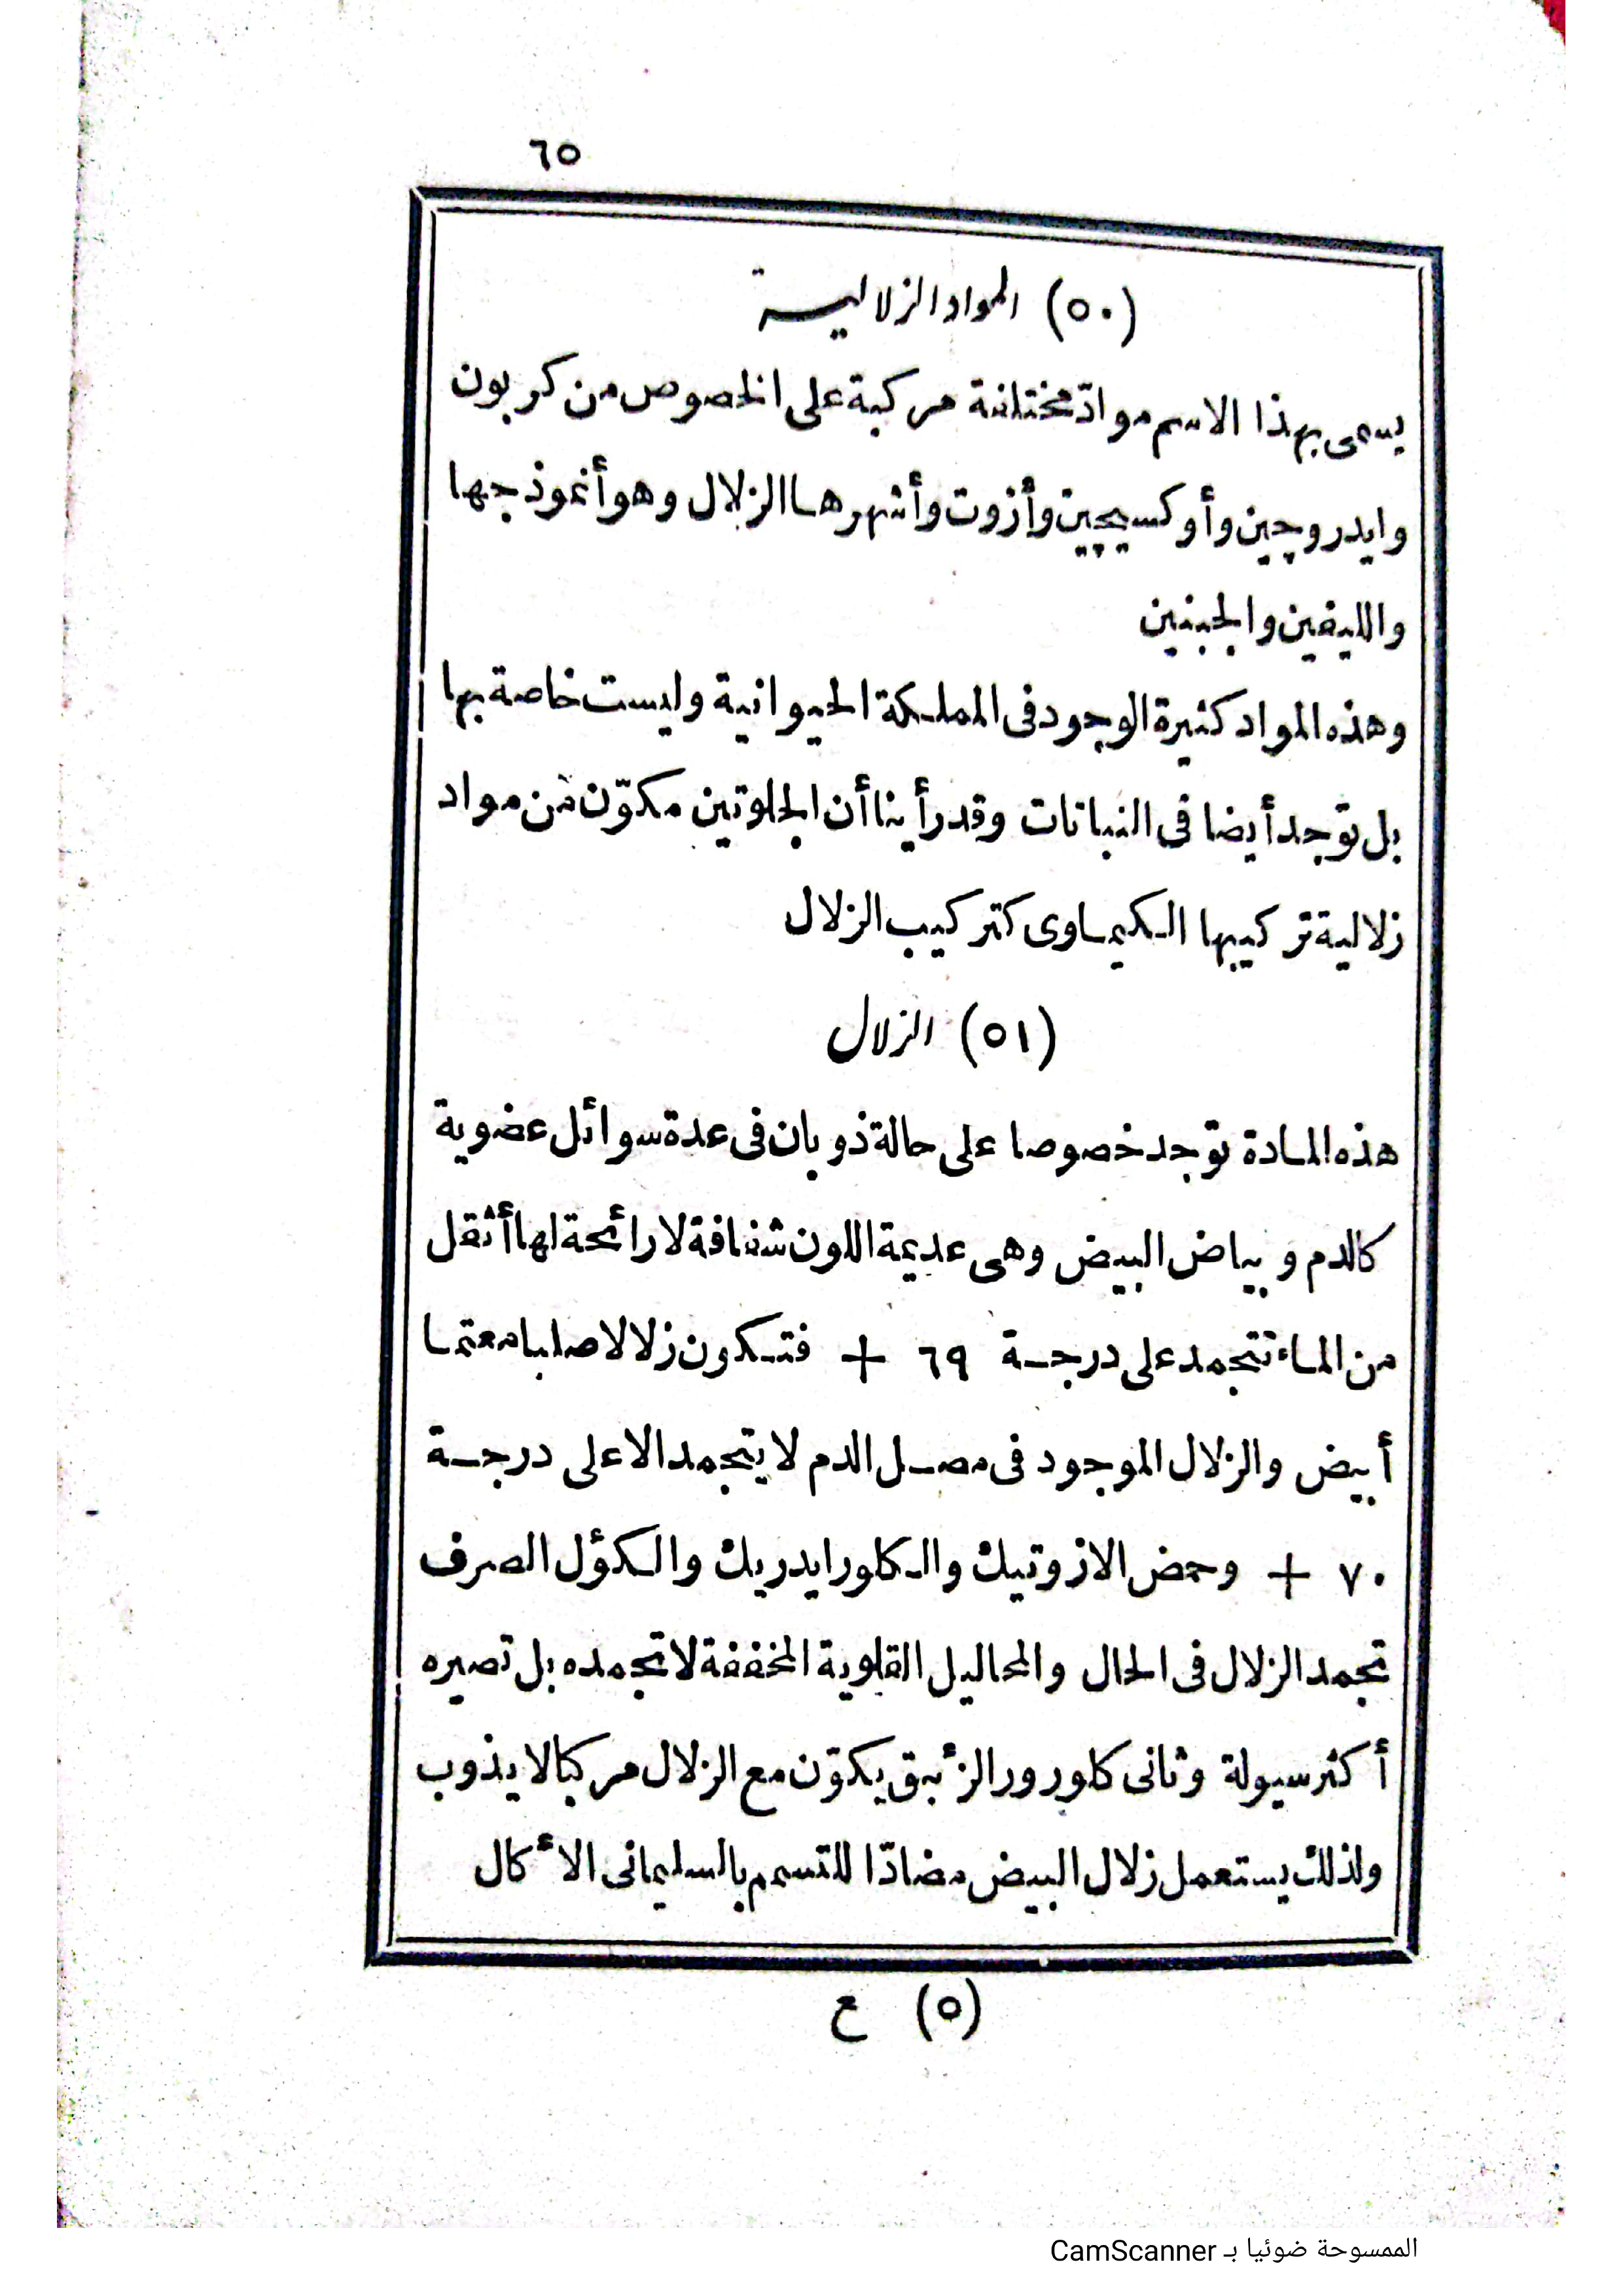 ٦٥
(٥٠) المواد الزلالية
يسمى بهذا الاسم موادّ مختلفة مركبة على الخصوص من كربون
وايدروچين وأوكسيچين وأزوت وأشهرها الزلال وهو أنموذجها
والليفين والجبنين
وهذه المواد كثيرة الوجود فى المملكة الحيوانية وليست خاصة بها
بل توجد أيضا فى النباتات وقد رأينا أن الجلوتين مكوّن من مواد
زلالية تركيبها الكيماوى كتركيب الزلال
(٥١) الزلال
هذه المادة توجد خصوصا على حالة ذوبان فى عدة سوائل عضوية
كالدم وبياض البيض وهى عديمة اللون شفافة لا رائحة لها أثقل
من الماء تتجمد على درجة ٦٩ + فتكون زلالا صلبا معتما
أبيض والزلال الموجود فى مصل الدم لا يتجمد الا على درجة
٧٠ + وحمض الازوتيك والكلورايدريك والكؤل الصرف
تجمد الزلال فى الحال والمحاليل القلوية المخففة لا تجمده بل تصيره
أكثر سيولة وثانى كلورور الزئبق يكوّن مع الزلال مركبا لا يذوب
ولذلك يستعمل زلال البيض مضادّا للتسمم بالسليمانى الأكال
(٥) ع
الممسوحة ضوئيا بـ CamScanner